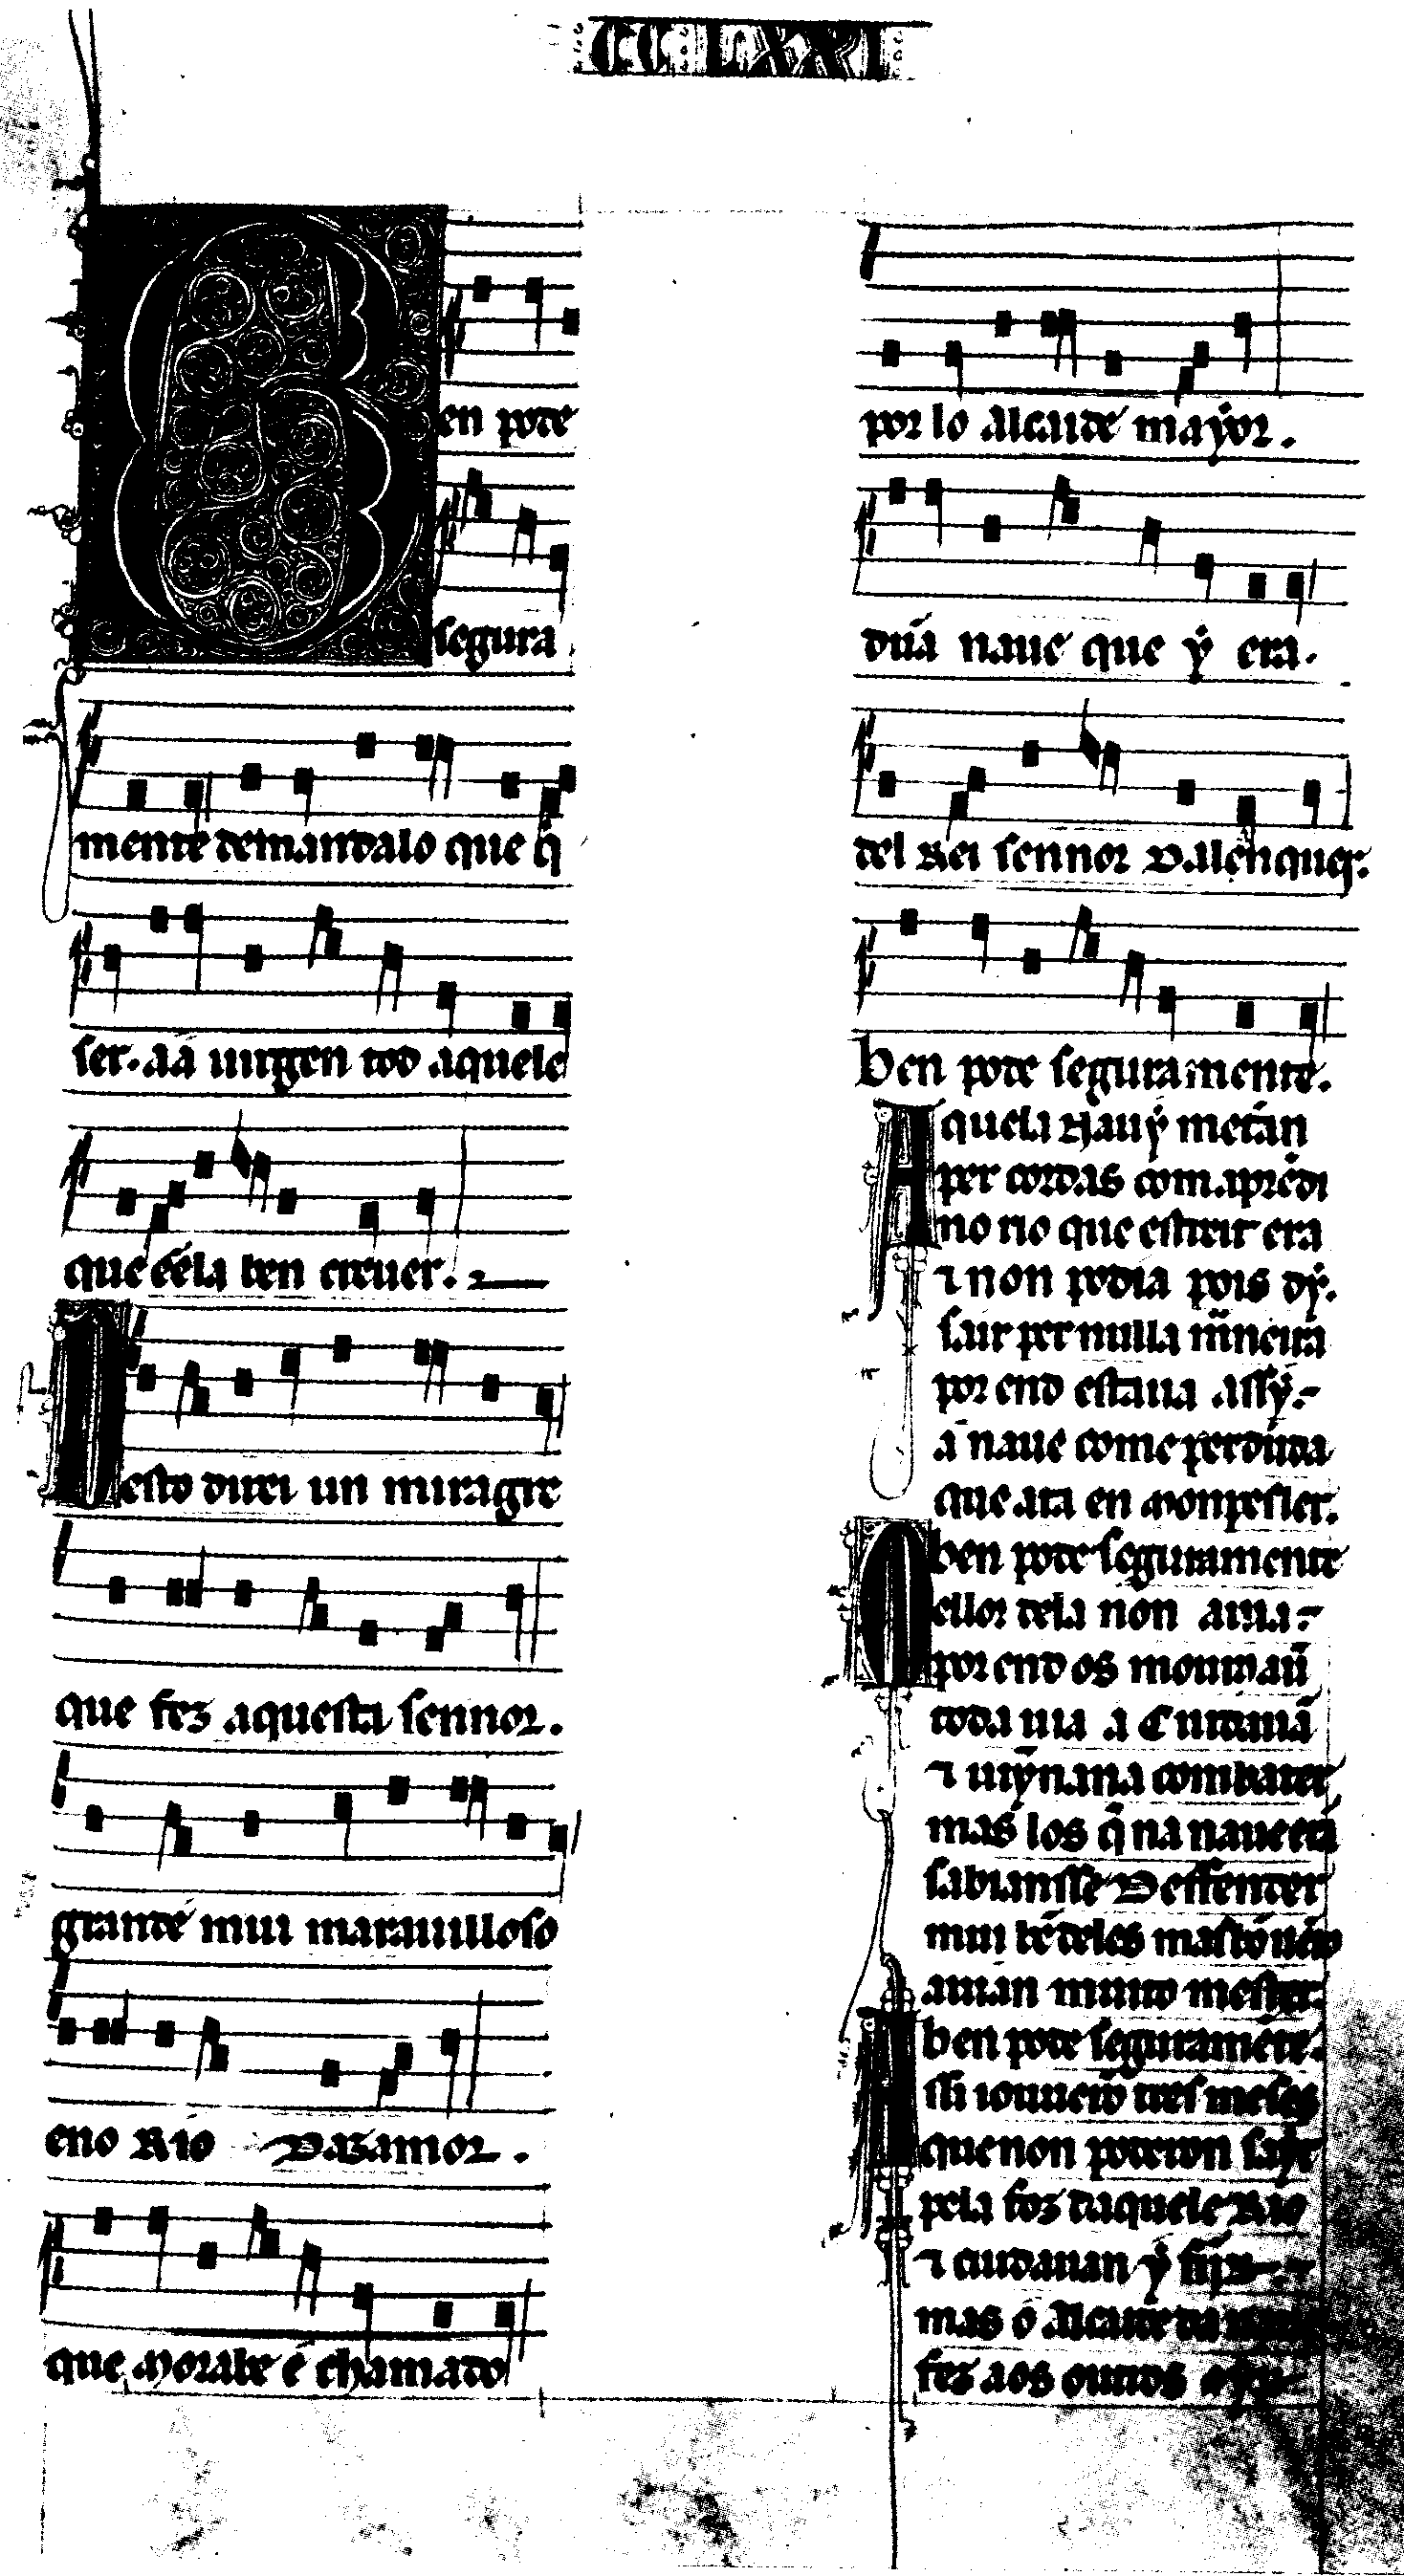 CCLXXI
Ben pode
segura
mente demandalo que q̃r
ser. aá uirgen tod aquele
que éela ben creuer.
Desto direi un miragre
que fez aquesta sennor.
grande mui marauilloso
eno Rio Dazamor.
que Morabe é chamado
por lo alcaide mayor.
dũa naue que ẏ era.
del Rei sennor Dalenquer.
ben pode seguramente.
Aquela Nauẏ metán
per cordas com aprẽdi
no rio que estreit era
⁊ non podia pois dẏ.
sair per nulla mãneira
por end estaua assẏ.
a naue come perduda
que ata en Monpesler.
ben pode seguramente
por end os mouros aũ
toda uia a C
⁊ uiỹnana combater
mas los q̃ na naue erã
sabiansse Deffender
mui bẽ deles mas
auian muito mester.
ben pode seguramẽte.
Assi iouuerõ tres meses
que non poderon saỹr
pela foz daquele Rio
⁊ cuidauan ẏ
mas o Alcaide da
fez aos outros